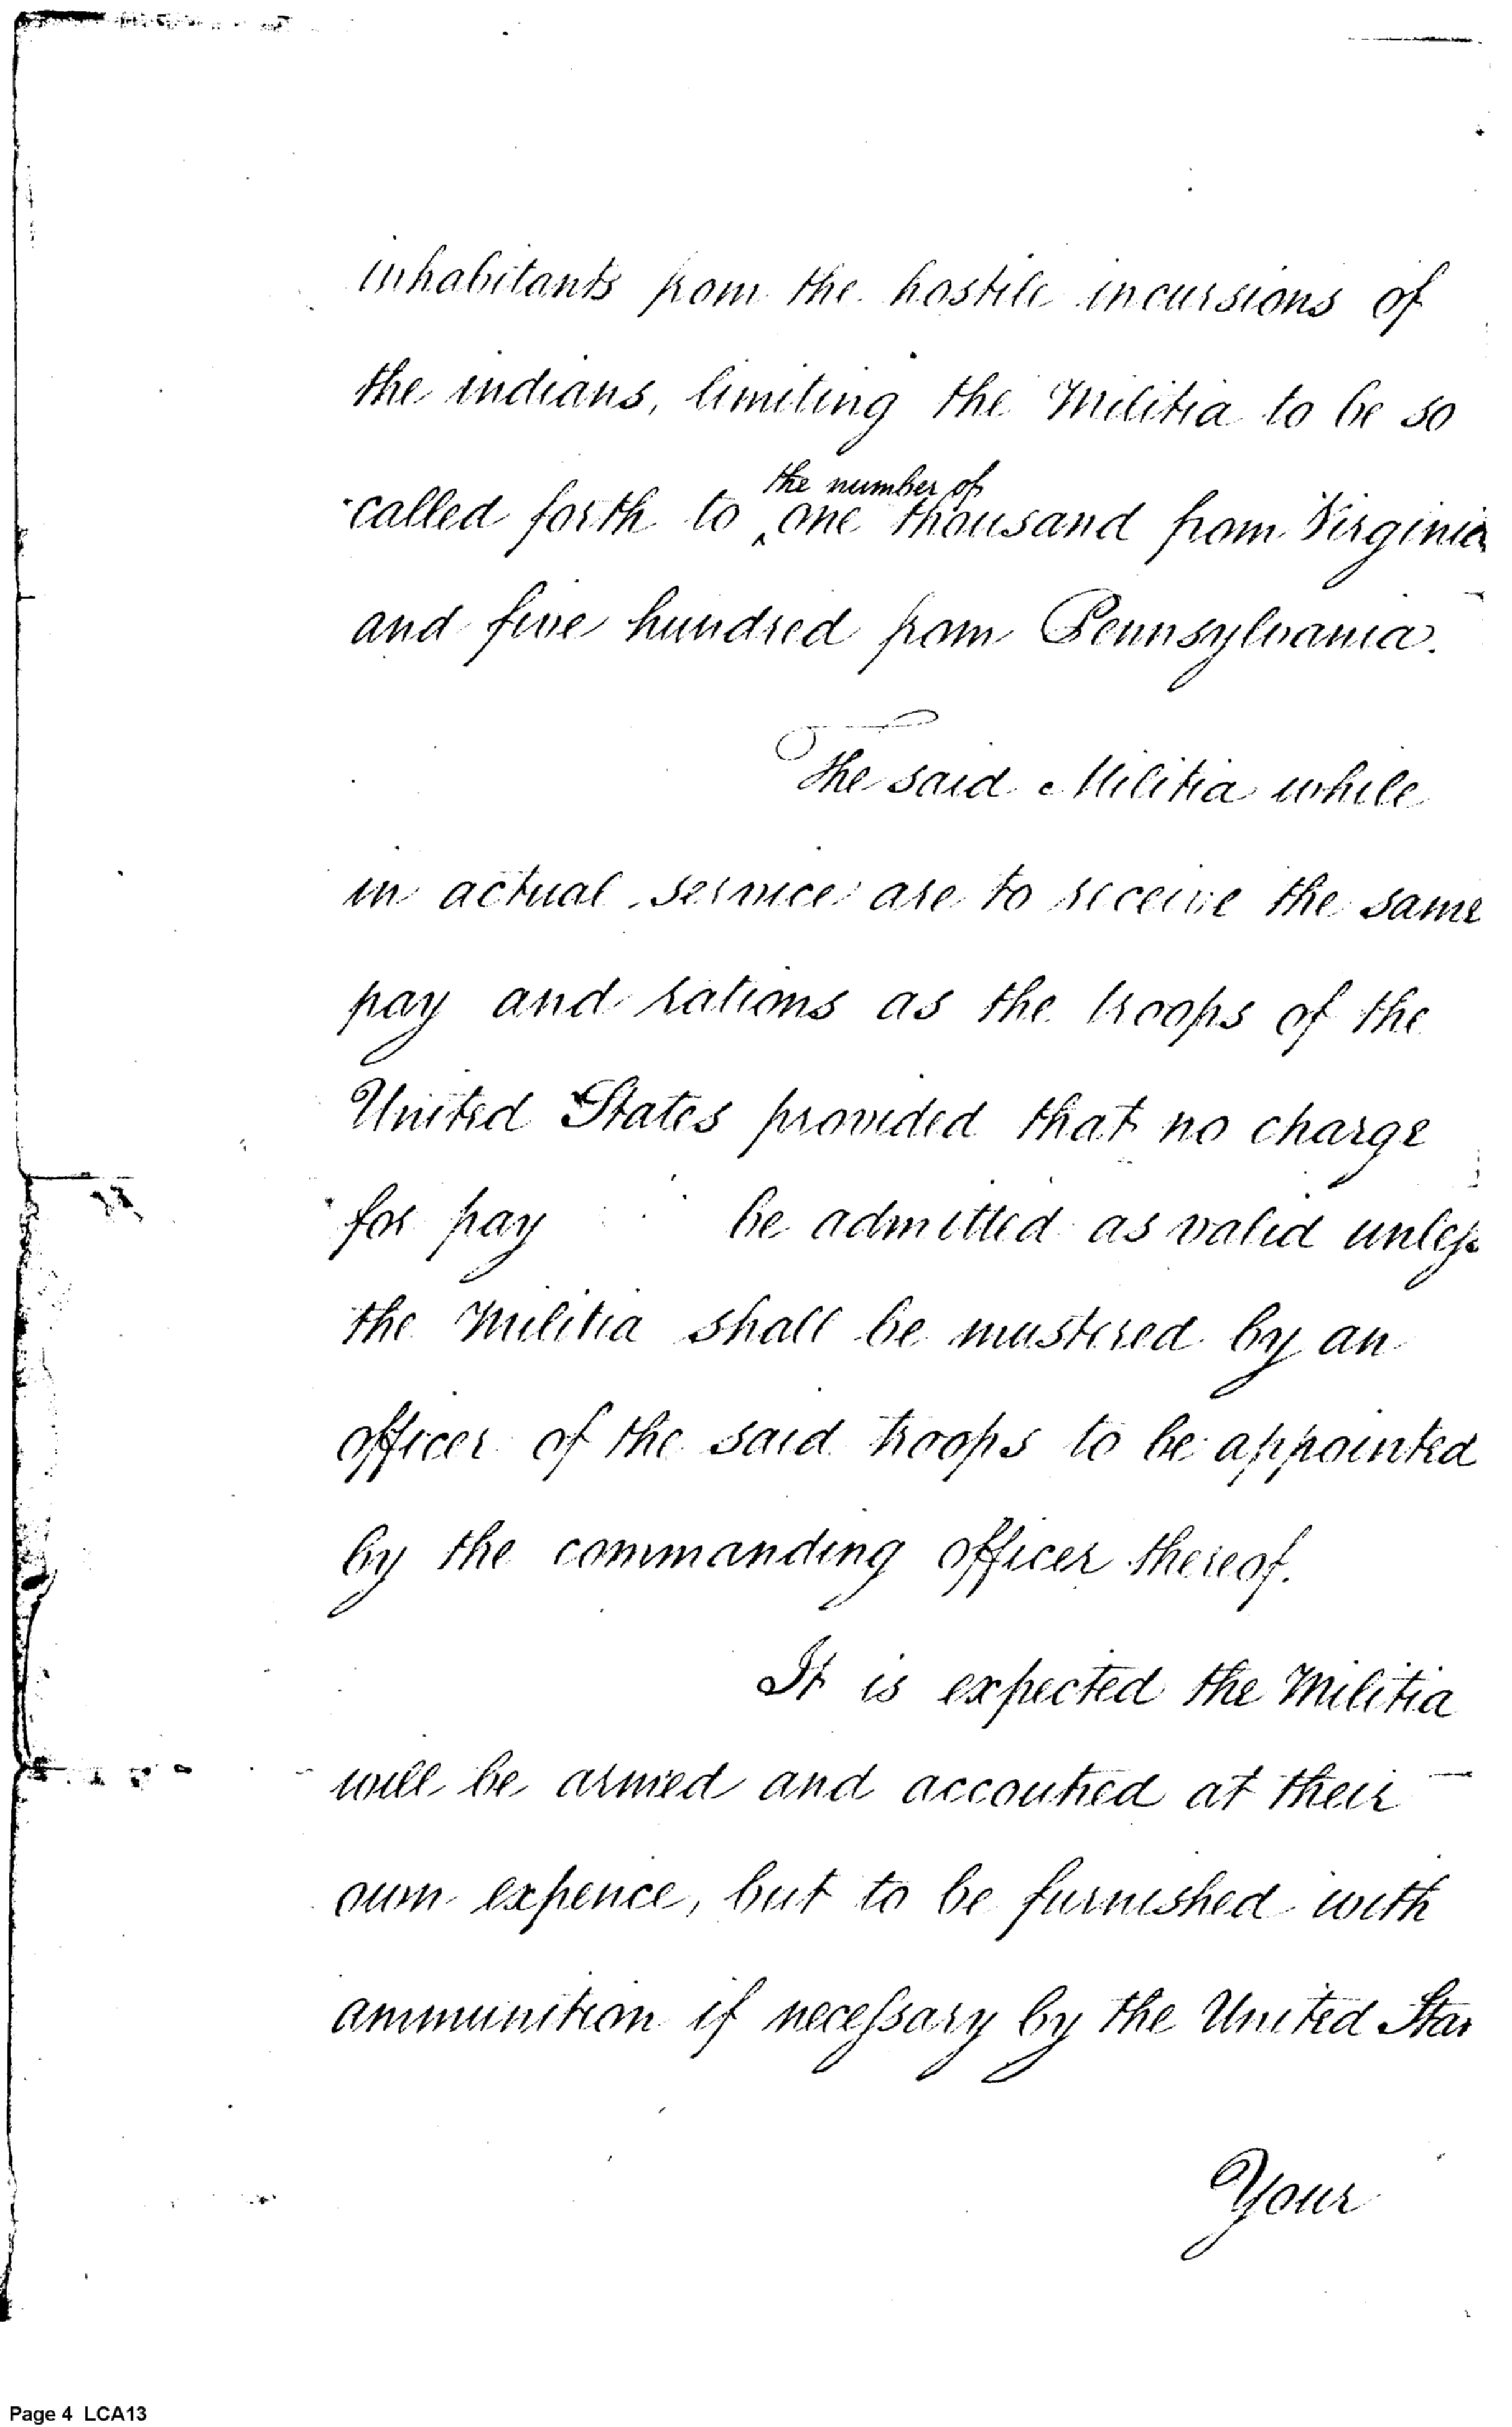 inhabitants from the hostile incursions of
the indians, limiting the Militia to be so
the number of
called forth to ‸ one thousand from Virginia
and five hundred from Pennsylvania.
The said Militia while
in actual service are to receive the same
pay and rations as the troops of the
United States provided that no charge
for pay be admitted as valid unless
the Militia shall be mustered by an
officer of the said troops to be appointed
by the commanding officer thereof.
It is expected the Militia
will be armed and accoutred at their
own expence, but to be furnished with
ammunition if necessary by the United Sta
Your
Page 4 LCA13